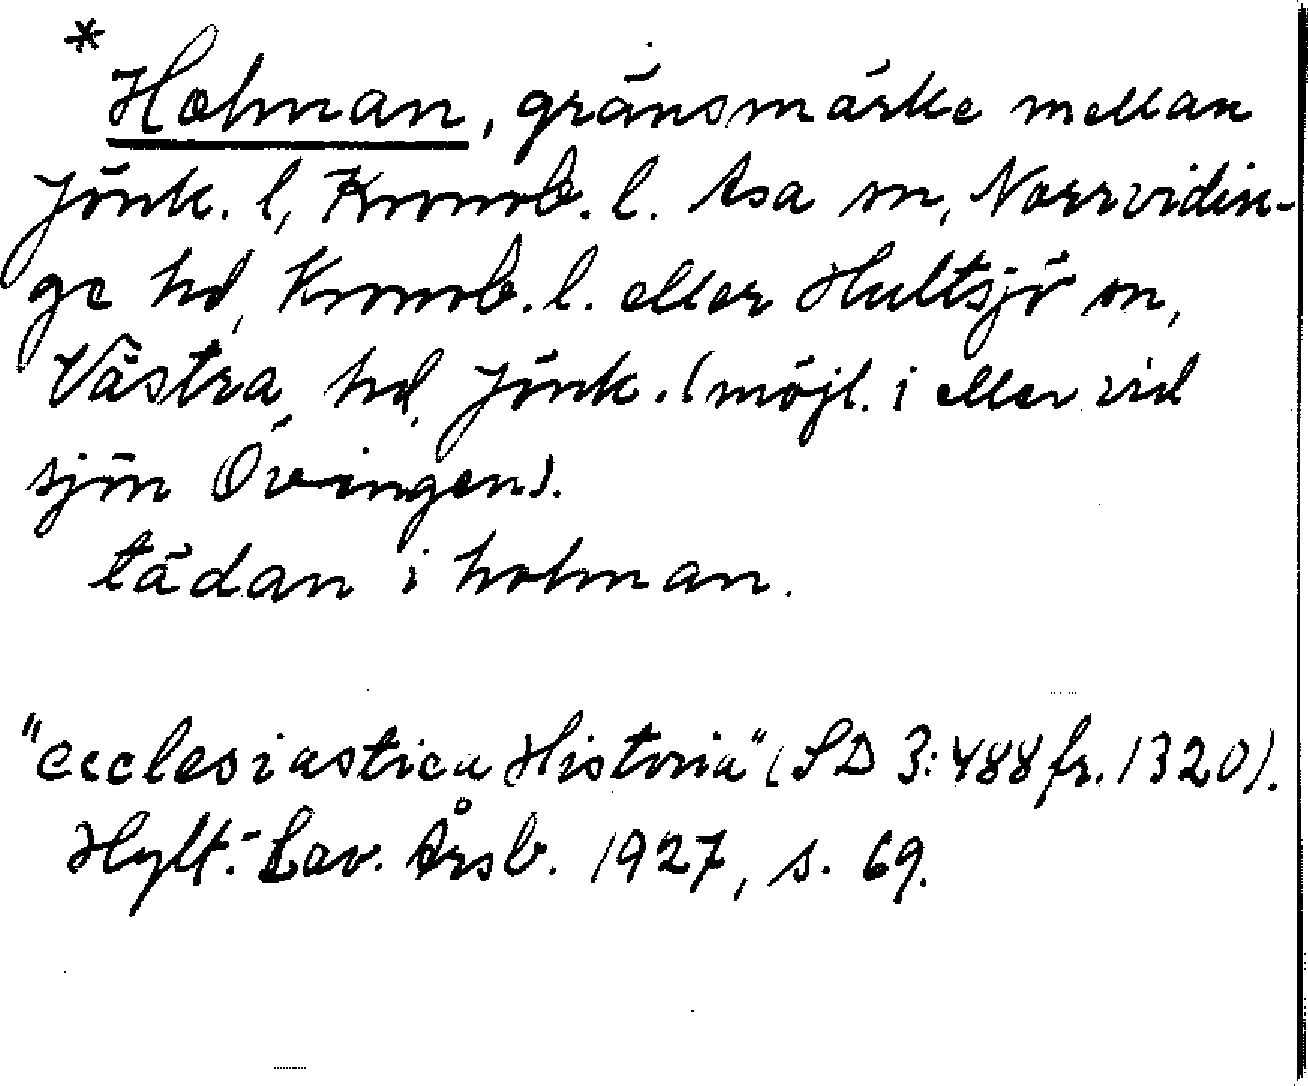 *
Holman, gränsmärke mellan
Jönk. l, Kronob. l. Asa sn, Norrvidin-
ge hd, Kronob. l. eller Hultsjö sn,
Västra hd, Jönk. (möjl. i eller vid
sjön Övingen).
tädan i holman.
"Ecclesiastica Historia" (SD 3:488 fr. 1320).
Hylt.-Cav. Årsb. 1927, s. 69.